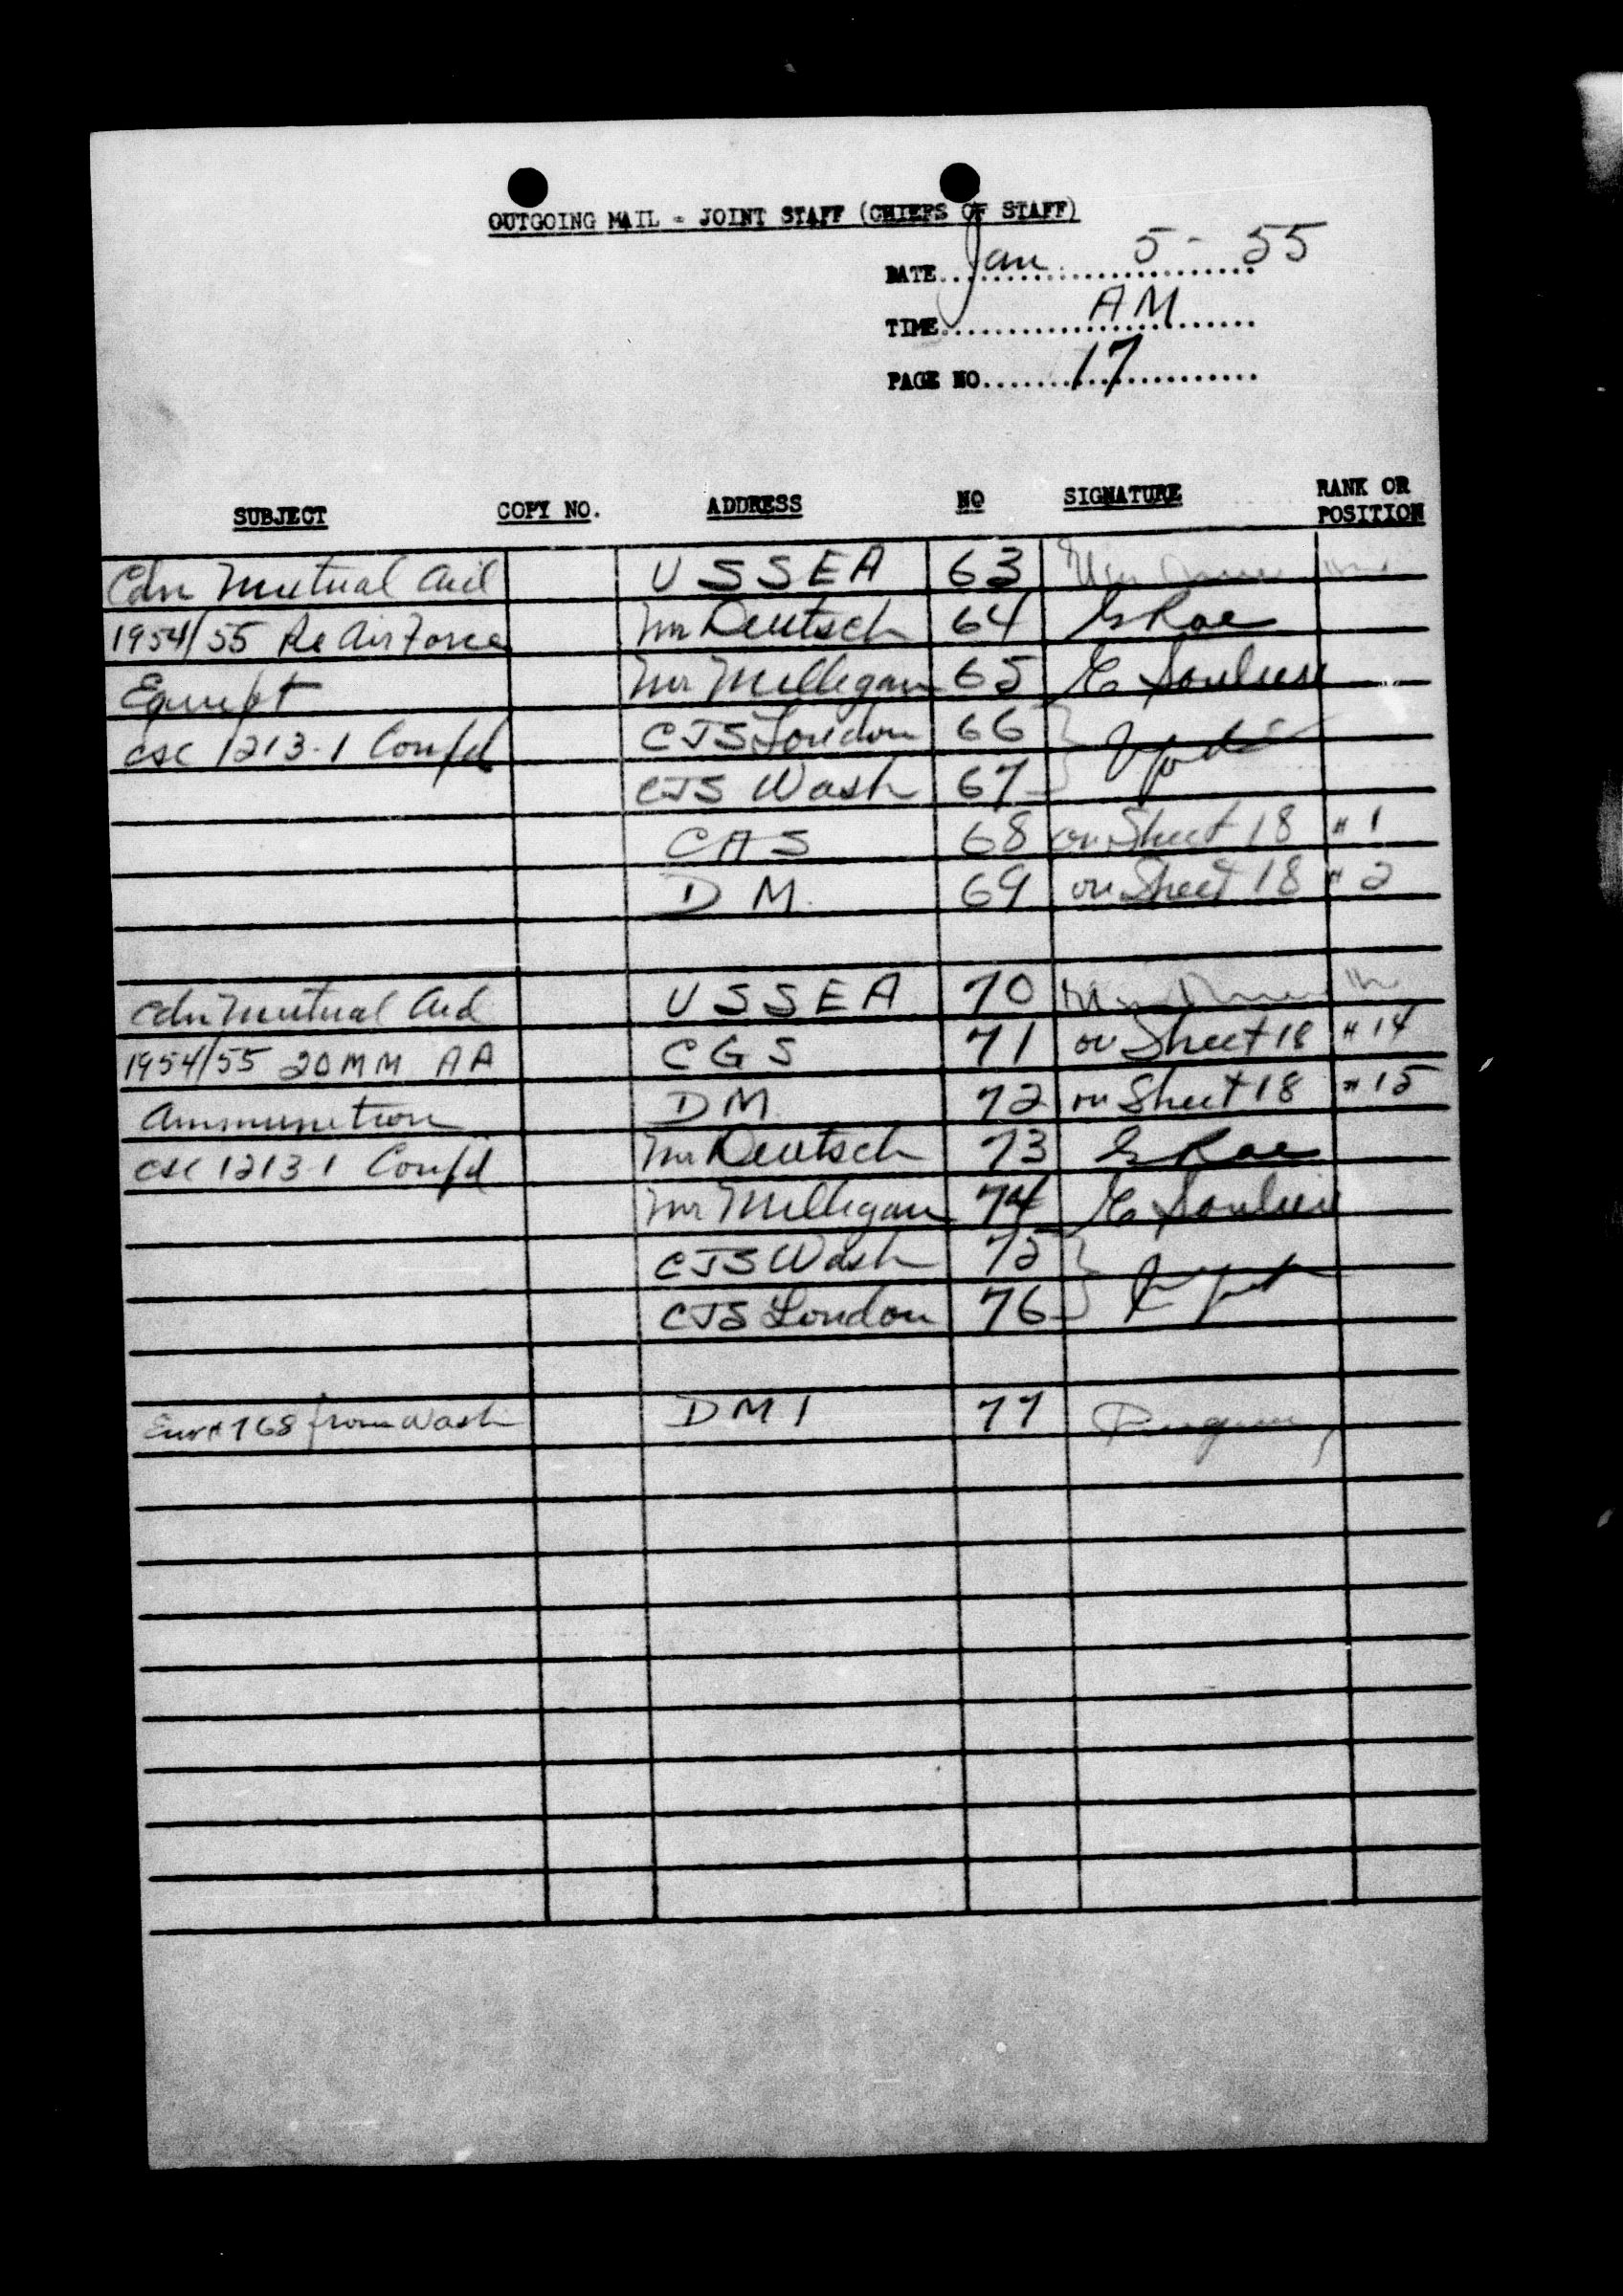 OUTGOING MAIL - JOINT STAFF (CHIEFS OF STAFF)
DATE Jan 5 - 55
TIME AM
PAGE NO 17
SUBJECT COPY NO. ADDRESS NO SIGNATURE RANK OR POSITION
Cdn Mutual Aid USSEA 63
1954/55 Re Air Force Mr Deutsch 64 G Rae
Equipt Mr Milligan 65
CSC 1213-1 Confd CJS London 66
CJS Wash 67
CAS 68 on Sheet 18 # 1
DM 69 on Sheet 18 # 2
Cdn Mutual Aid USSEA 70
1954/55 20MM AA CGS 71 on Sheet 18 # 14
Ammunition DM 72 on Sheet 18 # 15
CSC 1213-1 Confd Mr Deutsch 73 G Rae
Mr Milligan 74
CJS Wash 75
CJS London 76
Env # 768 from Wash DMI 77